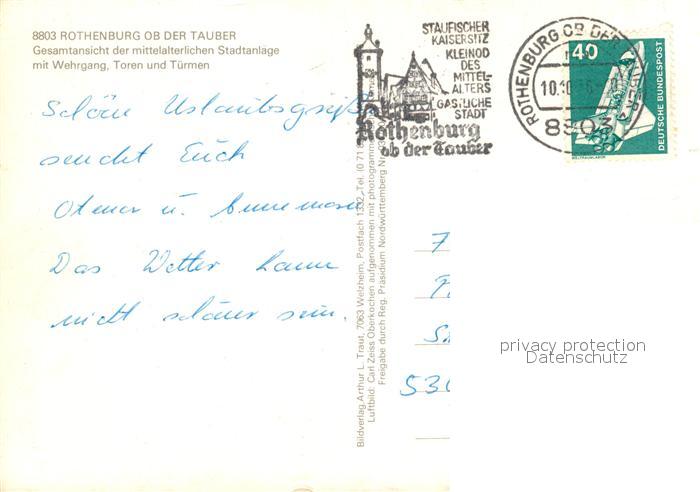 8803 ROTHENBURG OB DER TAUBER
Gesamtansicht der mittelalterlichen Stadtanlage
mit Wehrgang, Toren und Türmen
Schöne Urlaubsgrüße
sendet Euch
u. Annemarie
Das Wetter kann
nicht schöner sein.
STAUFISCHER
KAISERSITZ
KLEINOD
DES
MITTEL-
ALTERS
GASTLICHE
STADT
Rothenburg
ob der Tauber
ROTHENBURG OB DER TAUBER
10.10.
8803
40
DEUTSCHE BUNDESPOST
WELTRAUMLABOR
Bildverlag Arthur L. Traut, 7063 Welzheim, Postfach 1332, Tel. (0 71
Luftbild: Carl Zeiss Oberkochen aufgenommen mit photogramm
Freigabe durch Reg. Präsidium Nordwürttemberg Nr.
7
530
privacy protection
Datenschutz